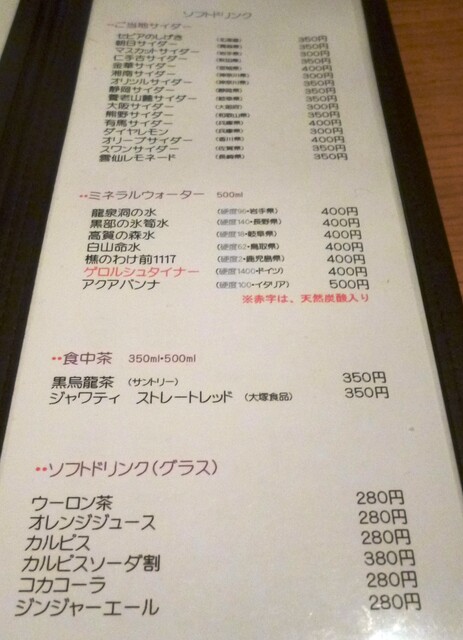 ソフトドリンク
ご当地サイダー
セピアのしげき (北海道) 350円
朝日サイダー 350円
マスカットサイダー (岩手県) 300円
仁手古サイダー (秋田県) 350円
金華サイダー (宮城県) 400円
湘南サイダー (神奈川県) 300円
オリツルサイダー (神奈川県) 350円
静岡サイダー (静岡県) 350円
養老山麓サイダー (岐阜県) 350円
大阪サイダー (大阪府) 300円
熊野サイダー (和歌山県) 350円
有馬サイダー (兵庫県) 400円
ダイヤレモン (兵庫県) 300円
オリーブサイダー (香川県) 400円
スワンサイダー (佐賀県) 350円
雲仙レモネード (長崎県) 350円
ミネラルウォーター 500ml
龍泉洞の水 (硬度96・岩手県) 400円
黒部の氷筍水 (硬度140・長野県) 400円
高賀の森水 (硬度18・岐阜県) 400円
白山命水 (硬度62・鳥取県) 400円
樵のわけ前1117 (硬度2・鹿児島県) 400円
ゲロルシュタイナー (硬度1400・ドイツ) 400円
アクアパンナ (硬度100・イタリア) 500円
※赤字は、天然炭酸入り
食中茶 350ml・500ml
黒烏龍茶 (サントリー) 350円
ジャワティ ストレートレッド (大塚食品) 350円
ソフトドリンク(グラス)
ウーロン茶 280円
オレンジジュース 280円
カルピス 280円
カルピスソーダ割 380円
コカコーラ 280円
ジンジャーエール 280円